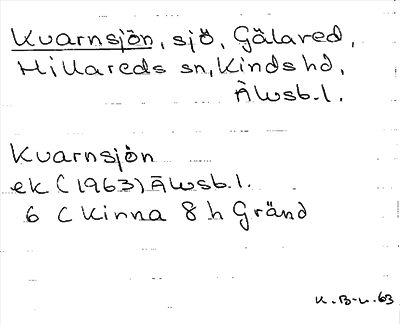 Kvarnsjön, sjö, Gälared,
Hillareds sn, Kinds hd,
Älvsb. l.
Kvarnsjön
ek (1963) Älvsb. l.
6 C Kinna 8 h Gränd
K. B-L. 63